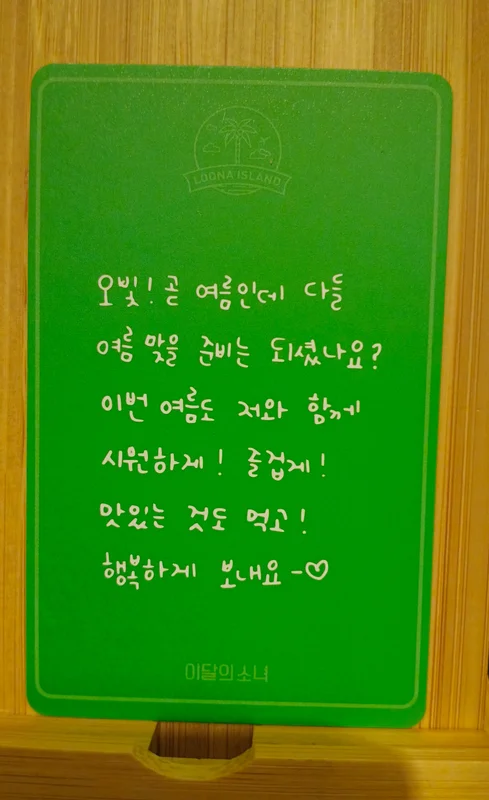 LOONA ISLAND
오빛! 곧 여름인데 다들
여름 맞을 준비는 되셨나요?
이번 여름도 저와 함께
시원하게! 즐겁게!
맛있는 것도 먹고!
행복하게 보내요-♡
이달의소녀